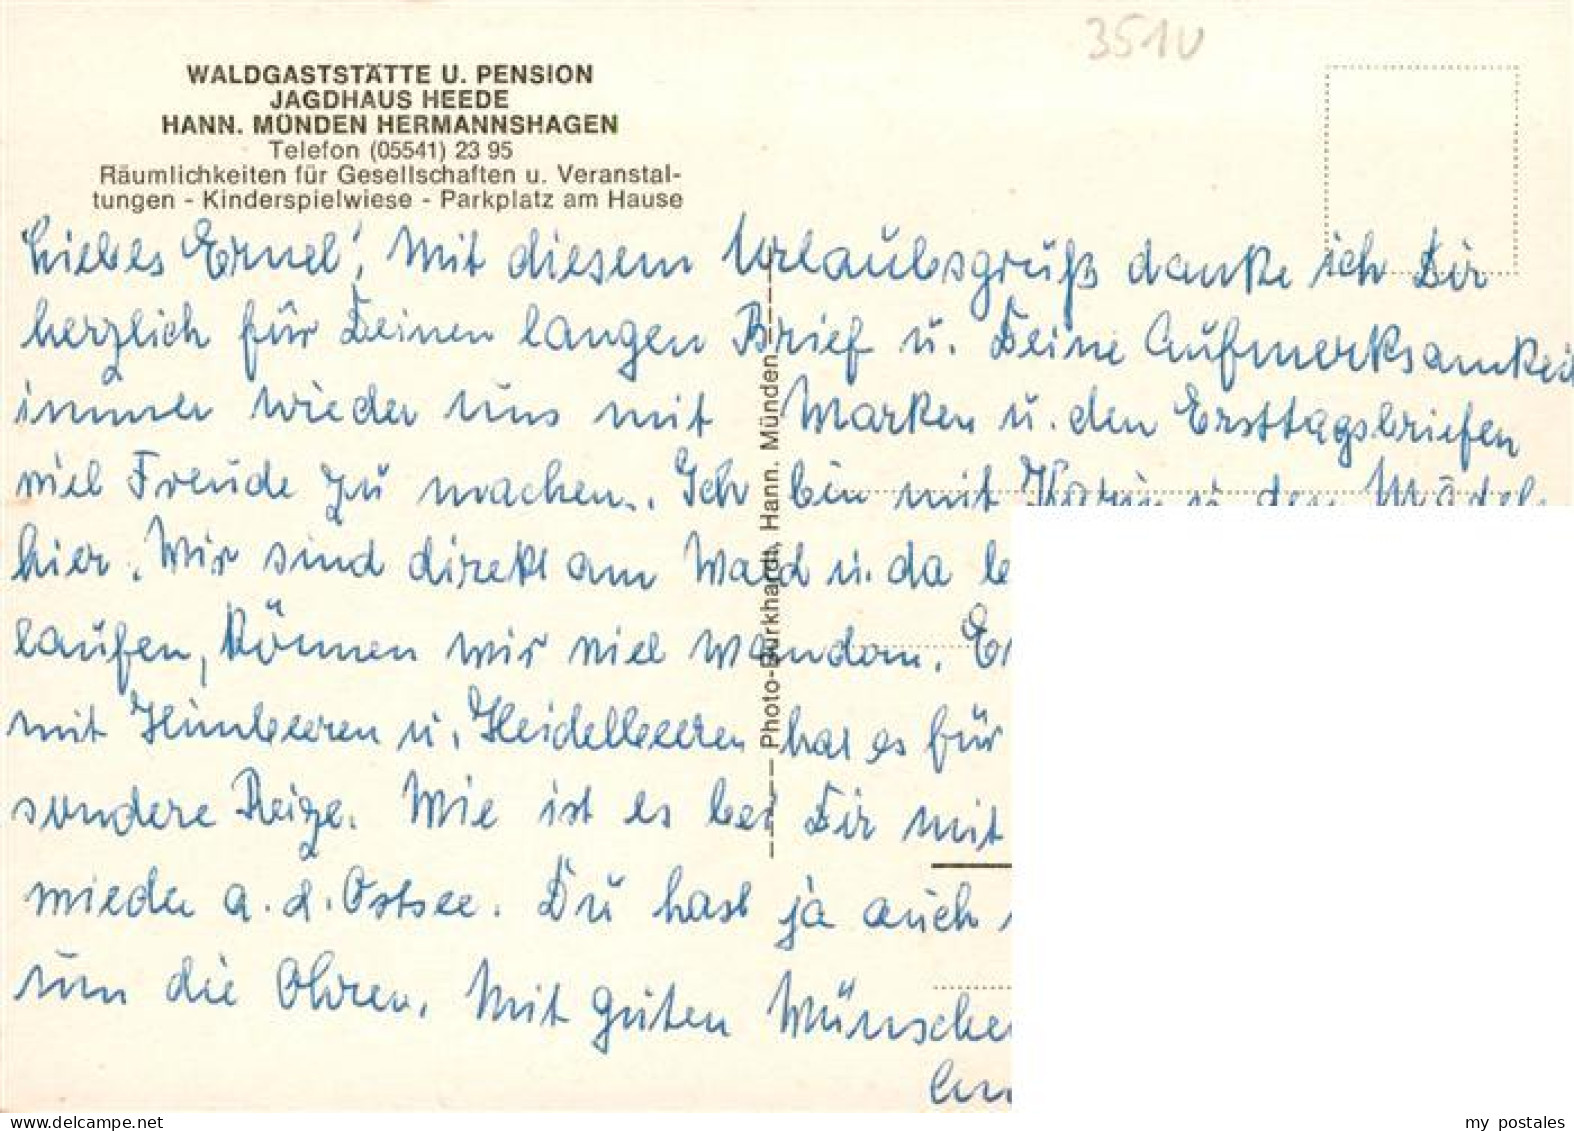 351U
WALDGASTSTÄTTE U. PENSION
JAGDHAUS HEEDE
HANN. MÜNDEN HERMANNSHAGEN
Telefon (05541) 23 95
Räumlichkeiten für Gesellschaften u. Veranstal-
tungen - Kinderspielwiese - Parkplatz am Hause
Liebes Ernel! Mit diesem Urlaubsgruß danke ich Dir
herzlich für Deinen langen Brief u. Deine Aufmerksamkeit
immer wieder uns mit Marken u. den Ersttagsbriefen
viel Freude zu machen. Ich bin mit Karin u. den Mädels
hier. Wir sind direkt am Wald u. da
laufen, können wir viel wandern.
mit Himbeeren u. Heidelbeeren hat es für
sondere Reize. Wie ist es bei Dir mit
wieder a. d. Ostsee. Du hast ja auch
um die Ohren. Mit guten Wünschen
Photo-Burkhardt, Hann. Münden
my postales
www.delcampe.net